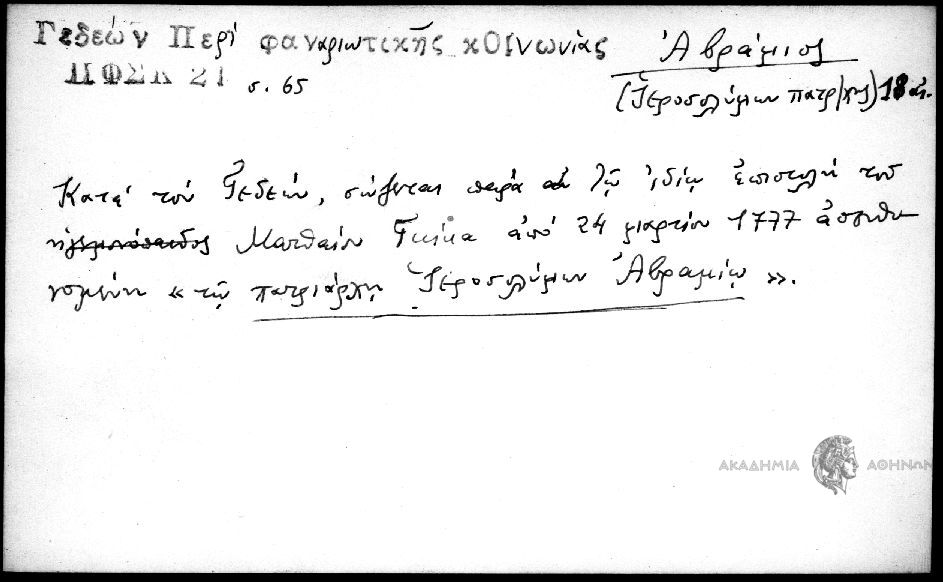 Γεδεών Περί φαναριωτικῆς κοινωνίας
ΜΦΣΚ 21 σ. 65
Ἀβράμιος
(Ἱεροσολύμων πατρ/χης) 18 αἰ.
Κατά τόν Γεδεών, σώζεται παρά τῷ ἰδίῳ ἐπιστολή τοῦ
Ματθαίου Γκίκα ἀπό 24 μαρτίου 1777 ἀπευθυ
νομένη « τῷ πατριάρχῃ Ἱεροσολύμων Ἀβραμίῳ ».
ΑΚΑΔΗΜΙΑ ΑΘΗΝΩΝ